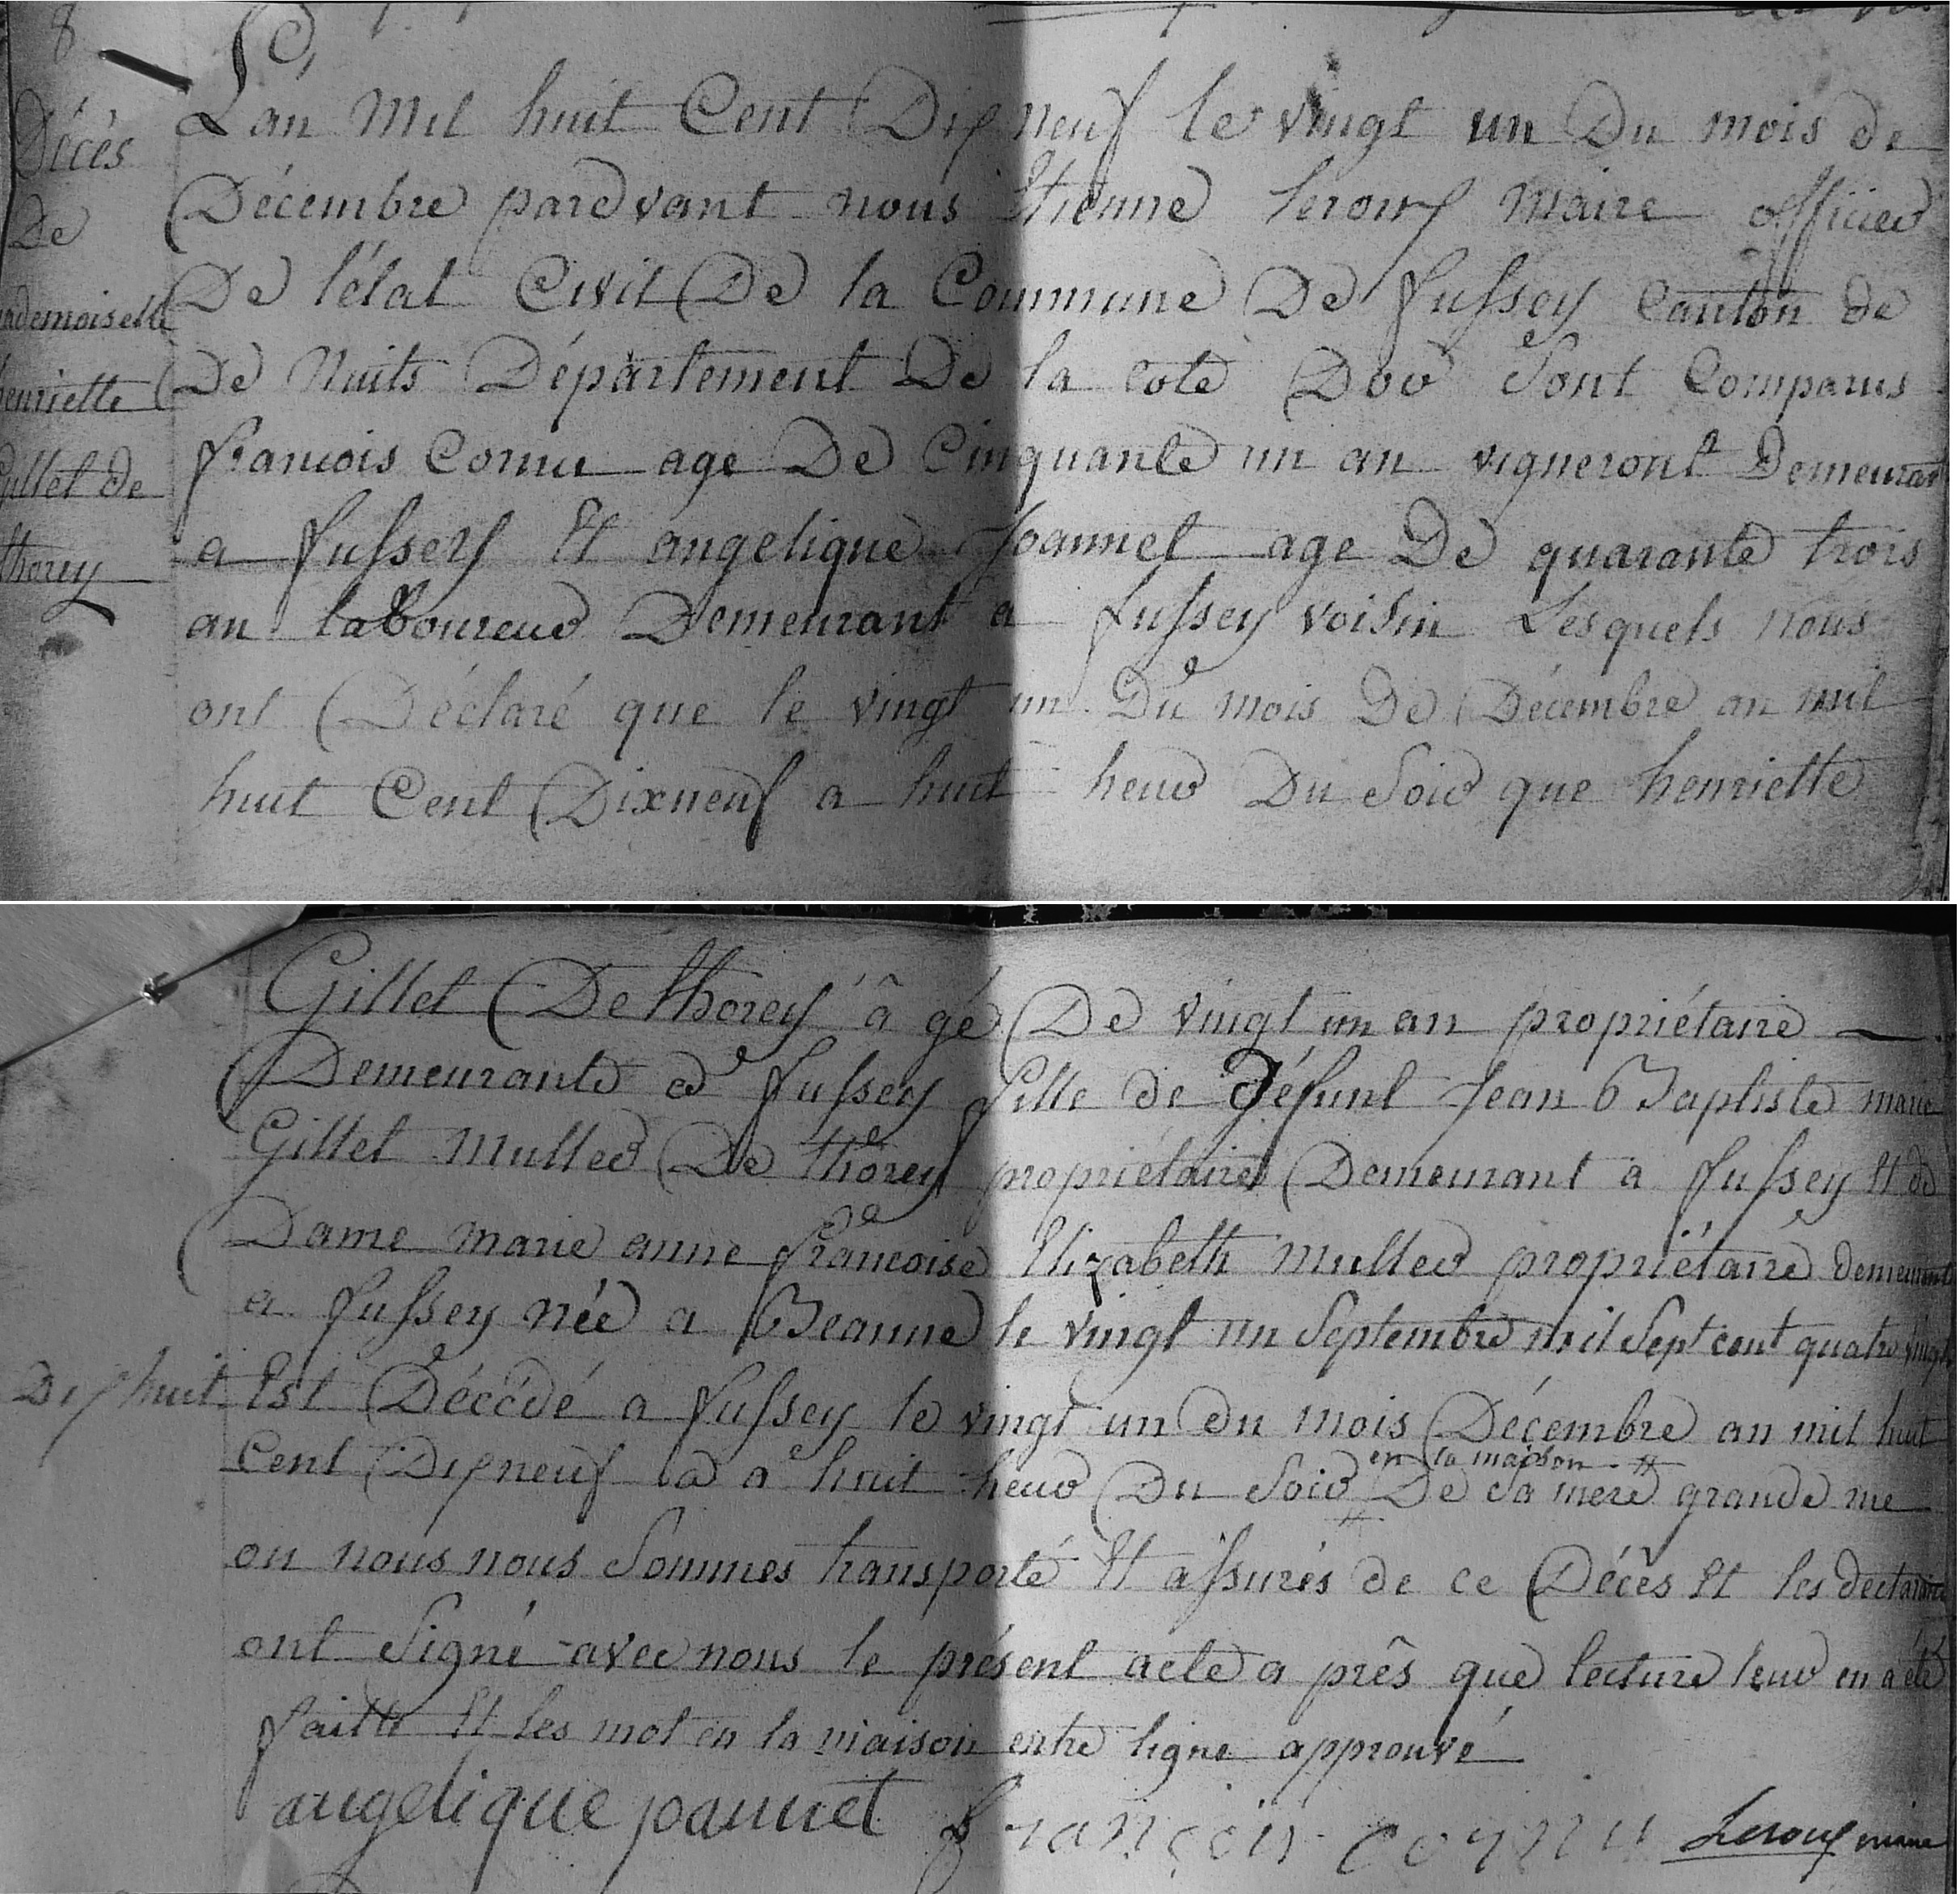 8
Décès
De
mademoiselle
henriette
Gillet de
thorey
L'an mil huit Cent Dix neuf le vingt un Du mois de
Décembre pardvant nous Etienne leroux maire officier
De l'état Civil De la Commune De fussey Canton de
De Nuits Département De la cote Dor Sont Comparus
francois Cornu age De Cinquante un an vigneront Demeurant
a fussey Et angelique Joannet age De quarante trois
an laboureur Demeurant a fussey voisin Lesquels nous
ont Déclaré que le vingt un Du mois De Décembre an mil
huit Cent Dixneuf a huit heur Du Soir que henriette
Gillet De thorey â gé De vingt un an propriétaire
Demeurante a fussey fille de Défunt Jean Baptiste marie
Gillet muller De thorey propriétaire Demeurant a fussey Et de
Dame marie anne francoise Elizabeth muller propriétaire demeurant
a fussey née a Beaune le vingt un Septembre mil Sept cent quatre vingt
Dix huit Est Décédé a fussey le vingt un du mois Décembre an mil huit
Cent Dixneuf a a huit heur Du Soir en la maison De sa mere grande me
ou nous nous Sommes transporté Et assurés de ce Décès Et les declarants
ont Signé avec nous le présent acte a près que lecture leur en a été
faitte Et les mot en la maison entre ligne approuvé
angelique joannet françois cornu Leroux maire